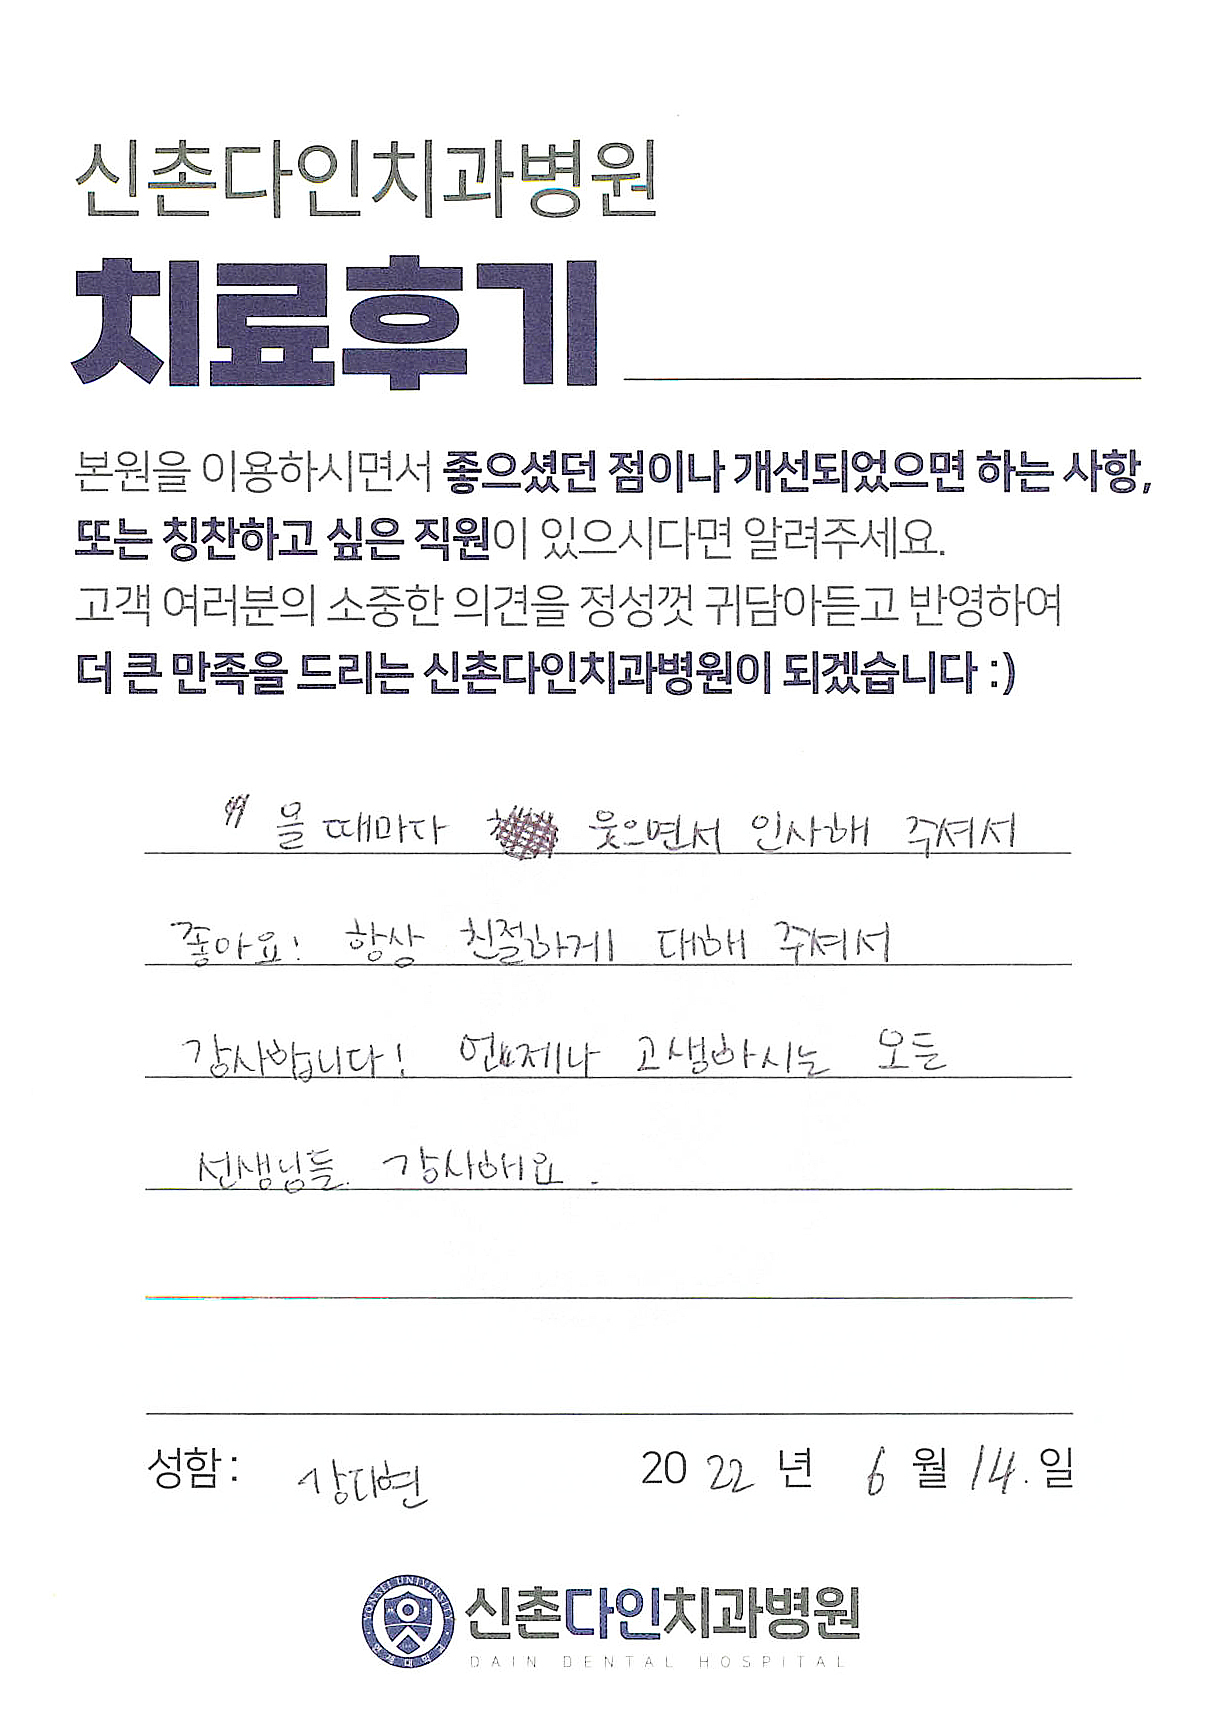 신촌다인치과병원
치료후기
본원을 이용하시면서 좋으셨던 점이나 개선되었으면 하는 사항,
또는 칭찬하고 싶은 직원이 있으시다면 알려주세요.
고객 여러분의 소중한 의견을 정성껏 귀담아듣고 반영하여
더 큰 만족을 드리는 신촌다인치과병원이 되겠습니다 :)
" 올 때마다 웃으면서 인사해 주셔서
좋아요! 항상 친절하게 대해 주셔서
감사합니다! 언제나 고생하시는 모든
선생님들 감사해요.
성함 : 2022 년 6 월 14. 일
YONSEI UNIVERSITY
연세대학교
신촌다인치과병원
DAIN DENTAL HOSPITAL